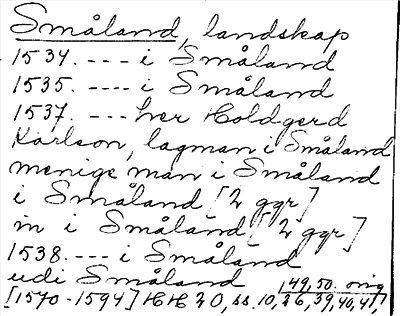 Småland, landskap
1534. --- i Småland
1535. ---- i Småland
1537. --- her Holdgerd
Karlson, lagman i Småland
menige man i Småland
i Småland [2 ggr]
in i Småland [2 ggr]
1538. --- i Småland
udi Småland 49,50. orig
[1570-1594] HH 20, ss. 10, 26, 39, 40, 41,